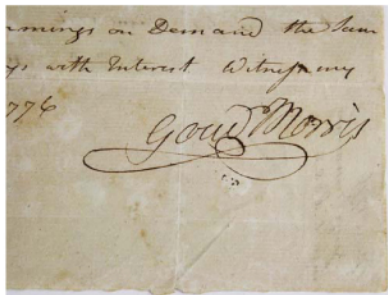 mmings on Demand the Sum
ys with Interest Witness my
776
Gouv Morris